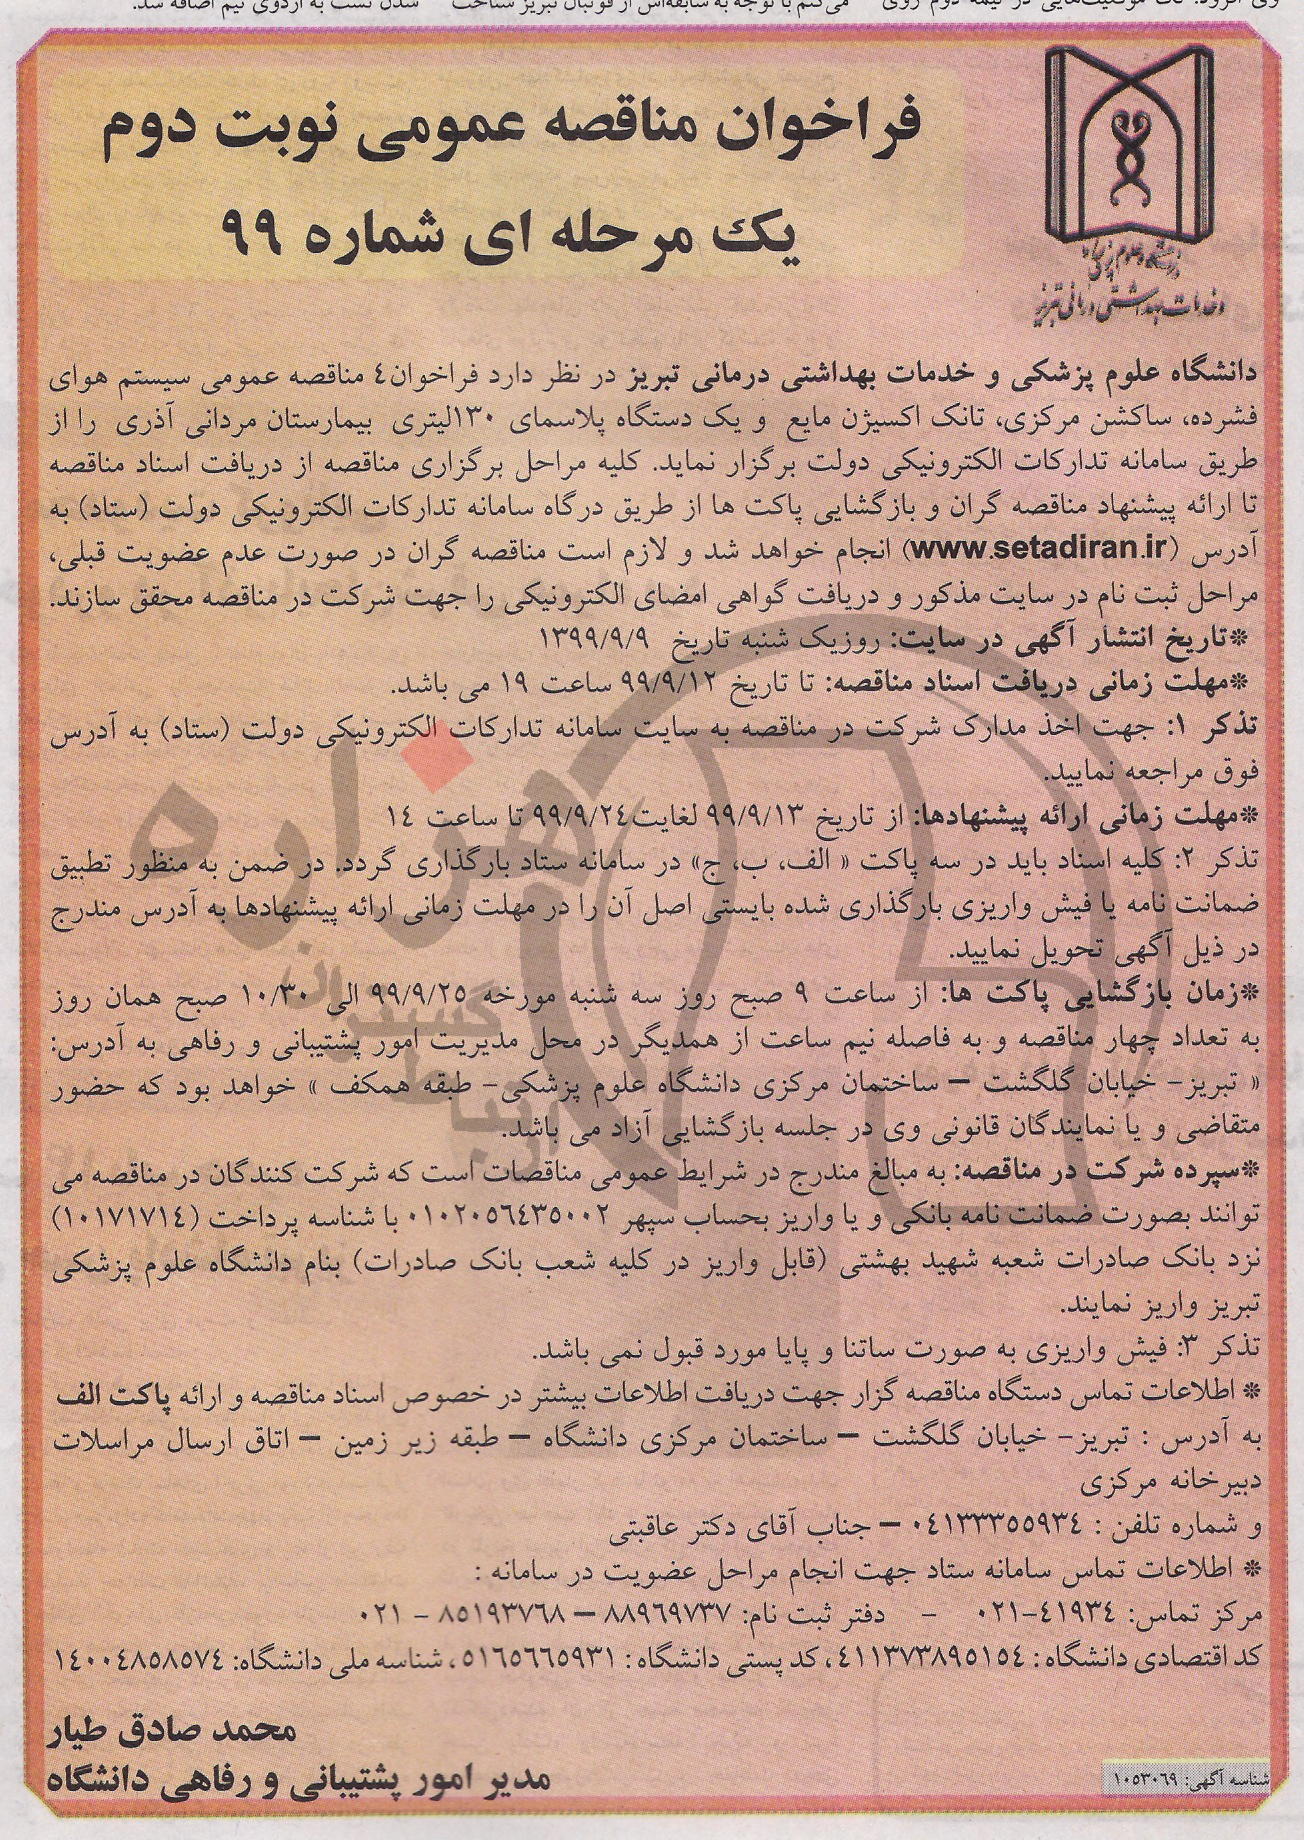 فراخوان مناقصه عمومی نوبت دوم
یک مرحله ای شماره ۹۹
دانشگاه علوم پزشکی
و خدمات بهداشتی درمانی تبریز
دانشگاه علوم پزشکی و خدمات بهداشتی درمانی تبریز در نظر دارد فراخوان۴ مناقصه عمومی سیستم هوای
فشرده، ساکشن مرکزی، تانک اکسیژن مایع و یک دستگاه پلاسمای ۱۳۰لیتری بیمارستان مردانی آذری را از
طریق سامانه تدارکات الکترونیکی دولت برگزار نماید. کلیه مراحل برگزاری مناقصه از دریافت اسناد مناقصه
تا ارائه پیشنهاد مناقصه گران و بازگشایی پاکت ها از طریق درگاه سامانه تدارکات الکترونیکی دولت (ستاد) به
آدرس (www.setadiran.ir) انجام خواهد شد و لازم است مناقصه گران در صورت عدم عضویت قبلی،
مراحل ثبت نام در سایت مذکور و دریافت گواهی امضای الکترونیکی را جهت شرکت در مناقصه محقق سازند.
*تاریخ انتشار آگهی در سایت: روزیک شنبه تاریخ ۱۳۹۹/۹/۹
*مهلت زمانی دریافت اسناد مناقصه: تا تاریخ ۹۹/۹/۱۲ ساعت ۱۹ می باشد.
تذکر ۱: جهت اخذ مدارک شرکت در مناقصه به سایت سامانه تدارکات الکترونیکی دولت (ستاد) به آدرس
فوق مراجعه نمایید.
*مهلت زمانی ارائه پیشنهادها: از تاریخ ۹۹/۹/۱۳ لغایت۹۹/۹/۲۴ تا ساعت ۱۴
تذکر ۲: کلیه اسناد باید در سه پاکت « الف، ب، ج» در سامانه ستاد بارگذاری گردد. در ضمن به منظور تطبیق
ضمانت نامه یا فیش واریزی بارگذاری شده بایستی اصل آن را در مهلت زمانی ارائه پیشنهادها به آدرس مندرج
در ذیل آگهی تحویل نمایید.
*زمان بازگشایی پاکت ها: از ساعت ۹ صبح روز سه شنبه مورخه ۹۹/۹/۲۵ الی ۱۰/۳۰ صبح همان روز
به تعداد چهار مناقصه و به فاصله نیم ساعت از همدیگر در محل مدیریت امور پشتیبانی و رفاهی به آدرس:
« تبریز- خیابان گلگشت – ساختمان مرکزی دانشگاه علوم پزشکی- طبقه همکف » خواهد بود که حضور
متقاضی و یا نمایندگان قانونی وی در جلسه بازگشایی آزاد می باشد.
*سپرده شرکت در مناقصه: به مبالغ مندرج در شرایط عمومی مناقصات است که شرکت کنندگان در مناقصه می
توانند بصورت ضمانت نامه بانکی و یا واریز بحساب سپهر ۰۱۰۲۰۵۶۴۳۵۰۰۲ با شناسه پرداخت (۱۰۱۷۱۷۱۴)
نزد بانک صادرات شعبه شهید بهشتی (قابل واریز در کلیه شعب بانک صادرات) بنام دانشگاه علوم پزشکی
تبریز واریز نمایند.
تذکر ۳: فیش واریزی به صورت ساتنا و پایا مورد قبول نمی باشد.
* اطلاعات تماس دستگاه مناقصه گزار جهت دریافت اطلاعات بیشتر در خصوص اسناد مناقصه و ارائه پاکت الف
به آدرس : تبریز- خیابان گلگشت – ساختمان مرکزی دانشگاه – طبقه زیر زمین – اتاق ارسال مراسلات
دبیرخانه مرکزی
و شماره تلفن : ۰۴۱۳۳۳۵۵۹۳۴ – جناب آقای دکتر عاقبتی
* اطلاعات تماس سامانه ستاد جهت انجام مراحل عضویت در سامانه :
مرکز تماس: ۴۱۹۳۴-۰۲۱ - دفتر ثبت نام: ۸۸۹۶۹۷۳۷ – ۸۵۱۹۳۷۶۸ - ۰۲۱
کد اقتصادی دانشگاه : ۴۱۱۳۷۳۸۹۵۱۵۴، کد پستی دانشگاه : ۵۱۶۵۶۶۵۹۳۱، شناسه ملی دانشگاه: ۱۴۰۰۴۸۵۸۵۷۴
محمد صادق طیار
مدیر امور پشتیبانی و رفاهی دانشگاه
شناسه آگهی: ۱۰۵۳۰۶۹
هزاره
گستران
ارتباط